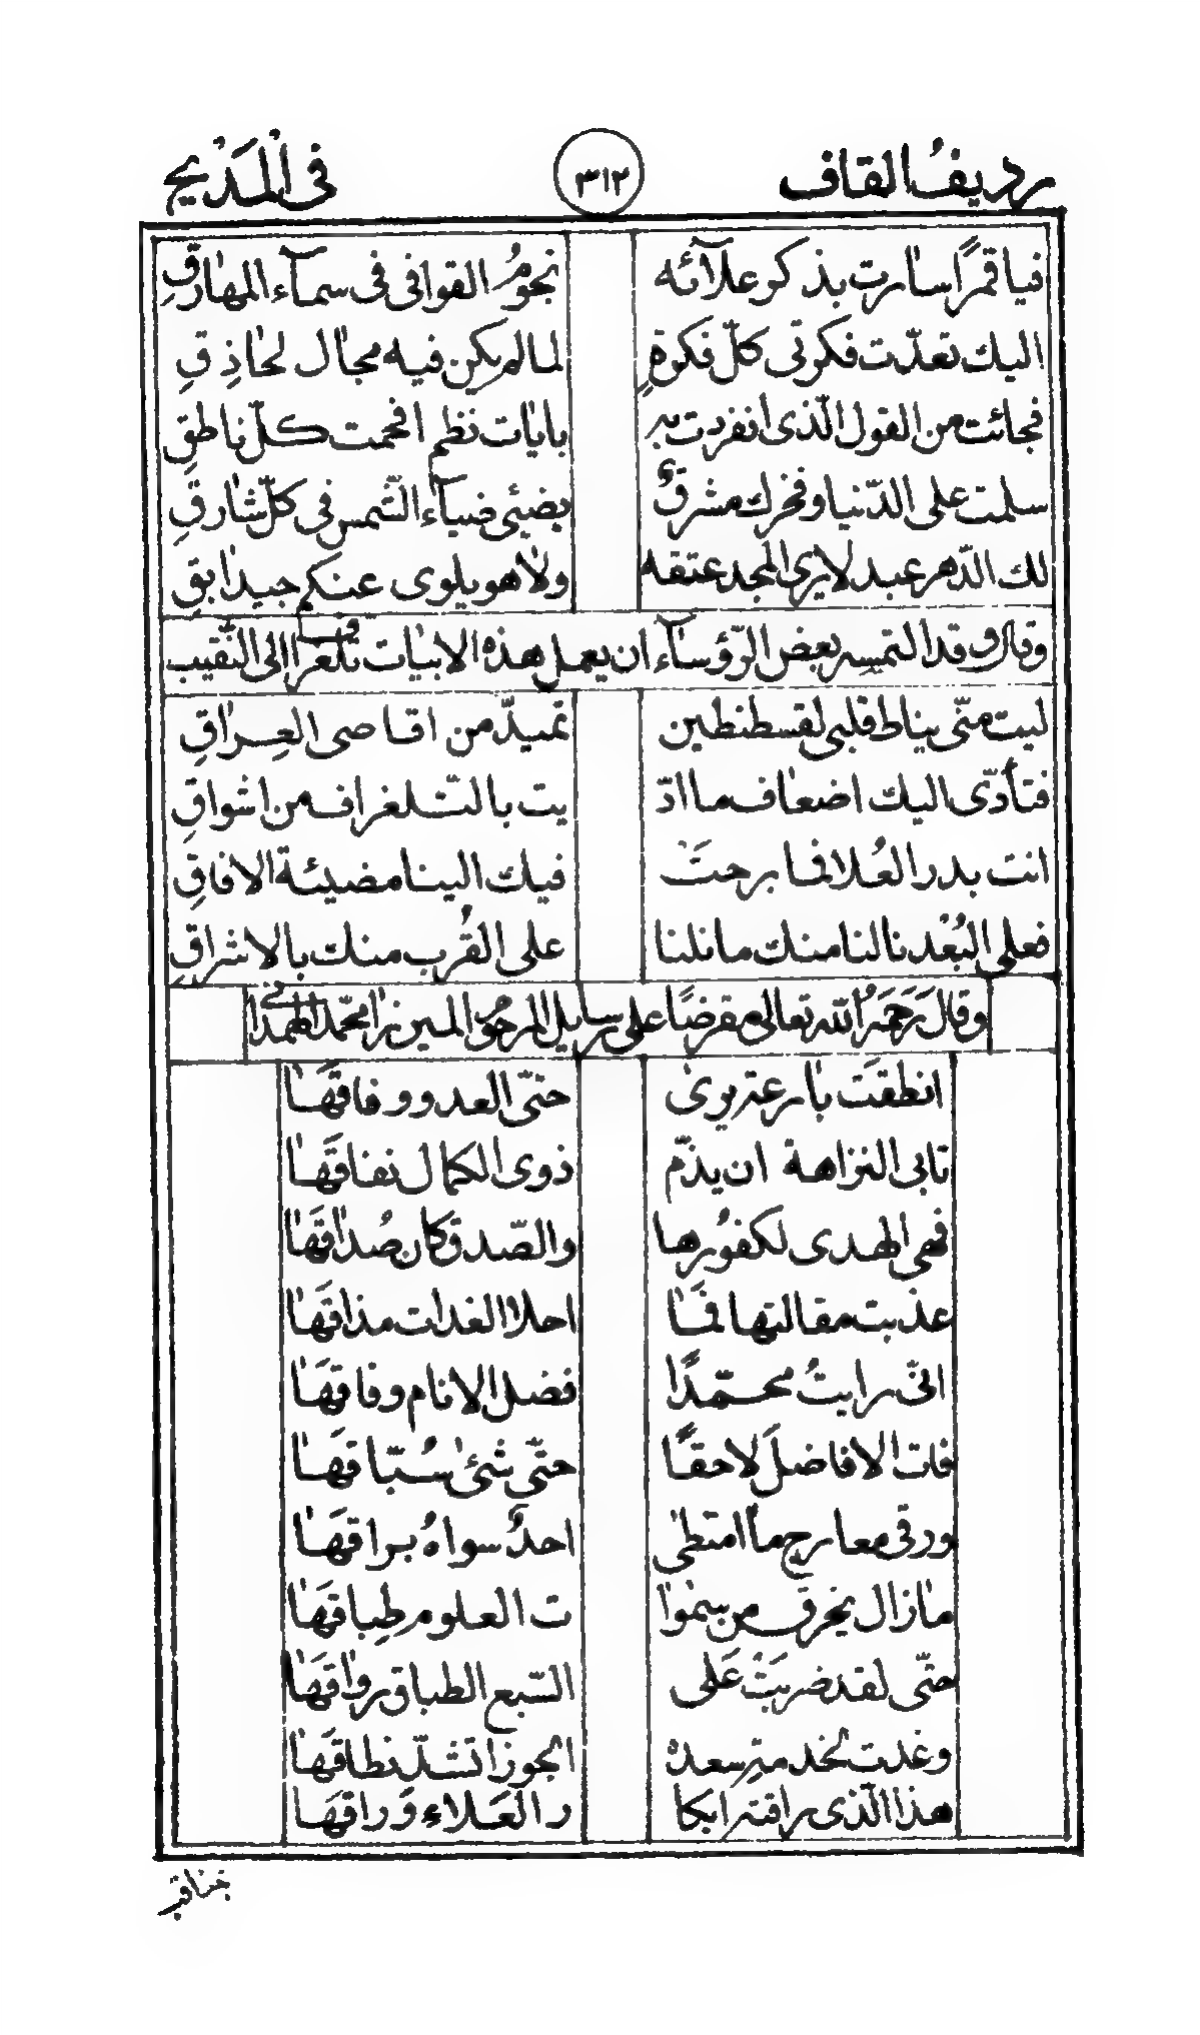 رديفُ القاف ٣١٢ فى الْمَدْيح
فيا قمرًا سارت بذكر علآئه نجومُ القوافى فى سمآء المهارقِ
اليك تعدّت فكرتى كلّ فكرةٍ لمالم يكن فيه مجال لحاذِقِ
فجائت من القول الّذى انفردت به بايات نظم افحمت كلّ ناطقِ
سلمت على الدّنيا وفخرك مشرقٌ يضيئ ضيآء الشّمس فى كلّ شارقِ
لك الدّهر عبد لا يرى المجد عتقه ولا هو يلوى عنكم جيد ابقِ
وقال وقد التمسه بعض الرّؤسآء ان يعمل هذه الابيات تلغرافها الى النّقيب
ليت منّى يناط قلبى لقسطنطين تميدّ من اقاصى العِراقِ
فتأدّى اليك اضعاف ما ادّ يت بالتّلغراف من اشواقِ
انت بدر العُلا فما برحتَ فيك الينا مضيئة الافاقِ
فعلى البُعْد نالنا منك مانلنا على القُرب منك بالاشراقِ
وقال رَحِمَهُ الله تعالى مقرضًا على رسايل المرحوم الميرزا محمّد الهمدا
انطقت بارعة يرى حتّى العدو وفاقَهَا
تابى النزاهة ان يذمّ ذوى الكمال نفاقَهَا
فهى الهدى لكفوُرها والصّدق كان صُداقَهَا
عذبت مقالتها فمَا احلا الغدات مذاقَهَا
انّى رايتُ محمّدًا فضل الانام وفاقَهَا
فات الافاضلَ لاحقًا حتّى شئى سُبّاقَهَا
ورقى معارج ما امتطى احدٌ سواهُ براقَهَا
مازال يخرق من سموا ت العلوم طِباقَهَا
حتّى لقد ضربَتْ عَلى السّبع الطباق رواقَهَا
وغدت لخدمتهِ سعدة الجوزا تشدّ نطاقَهَا
هذا الّذى راقته ابكا ر العَلاء وَراقهَا